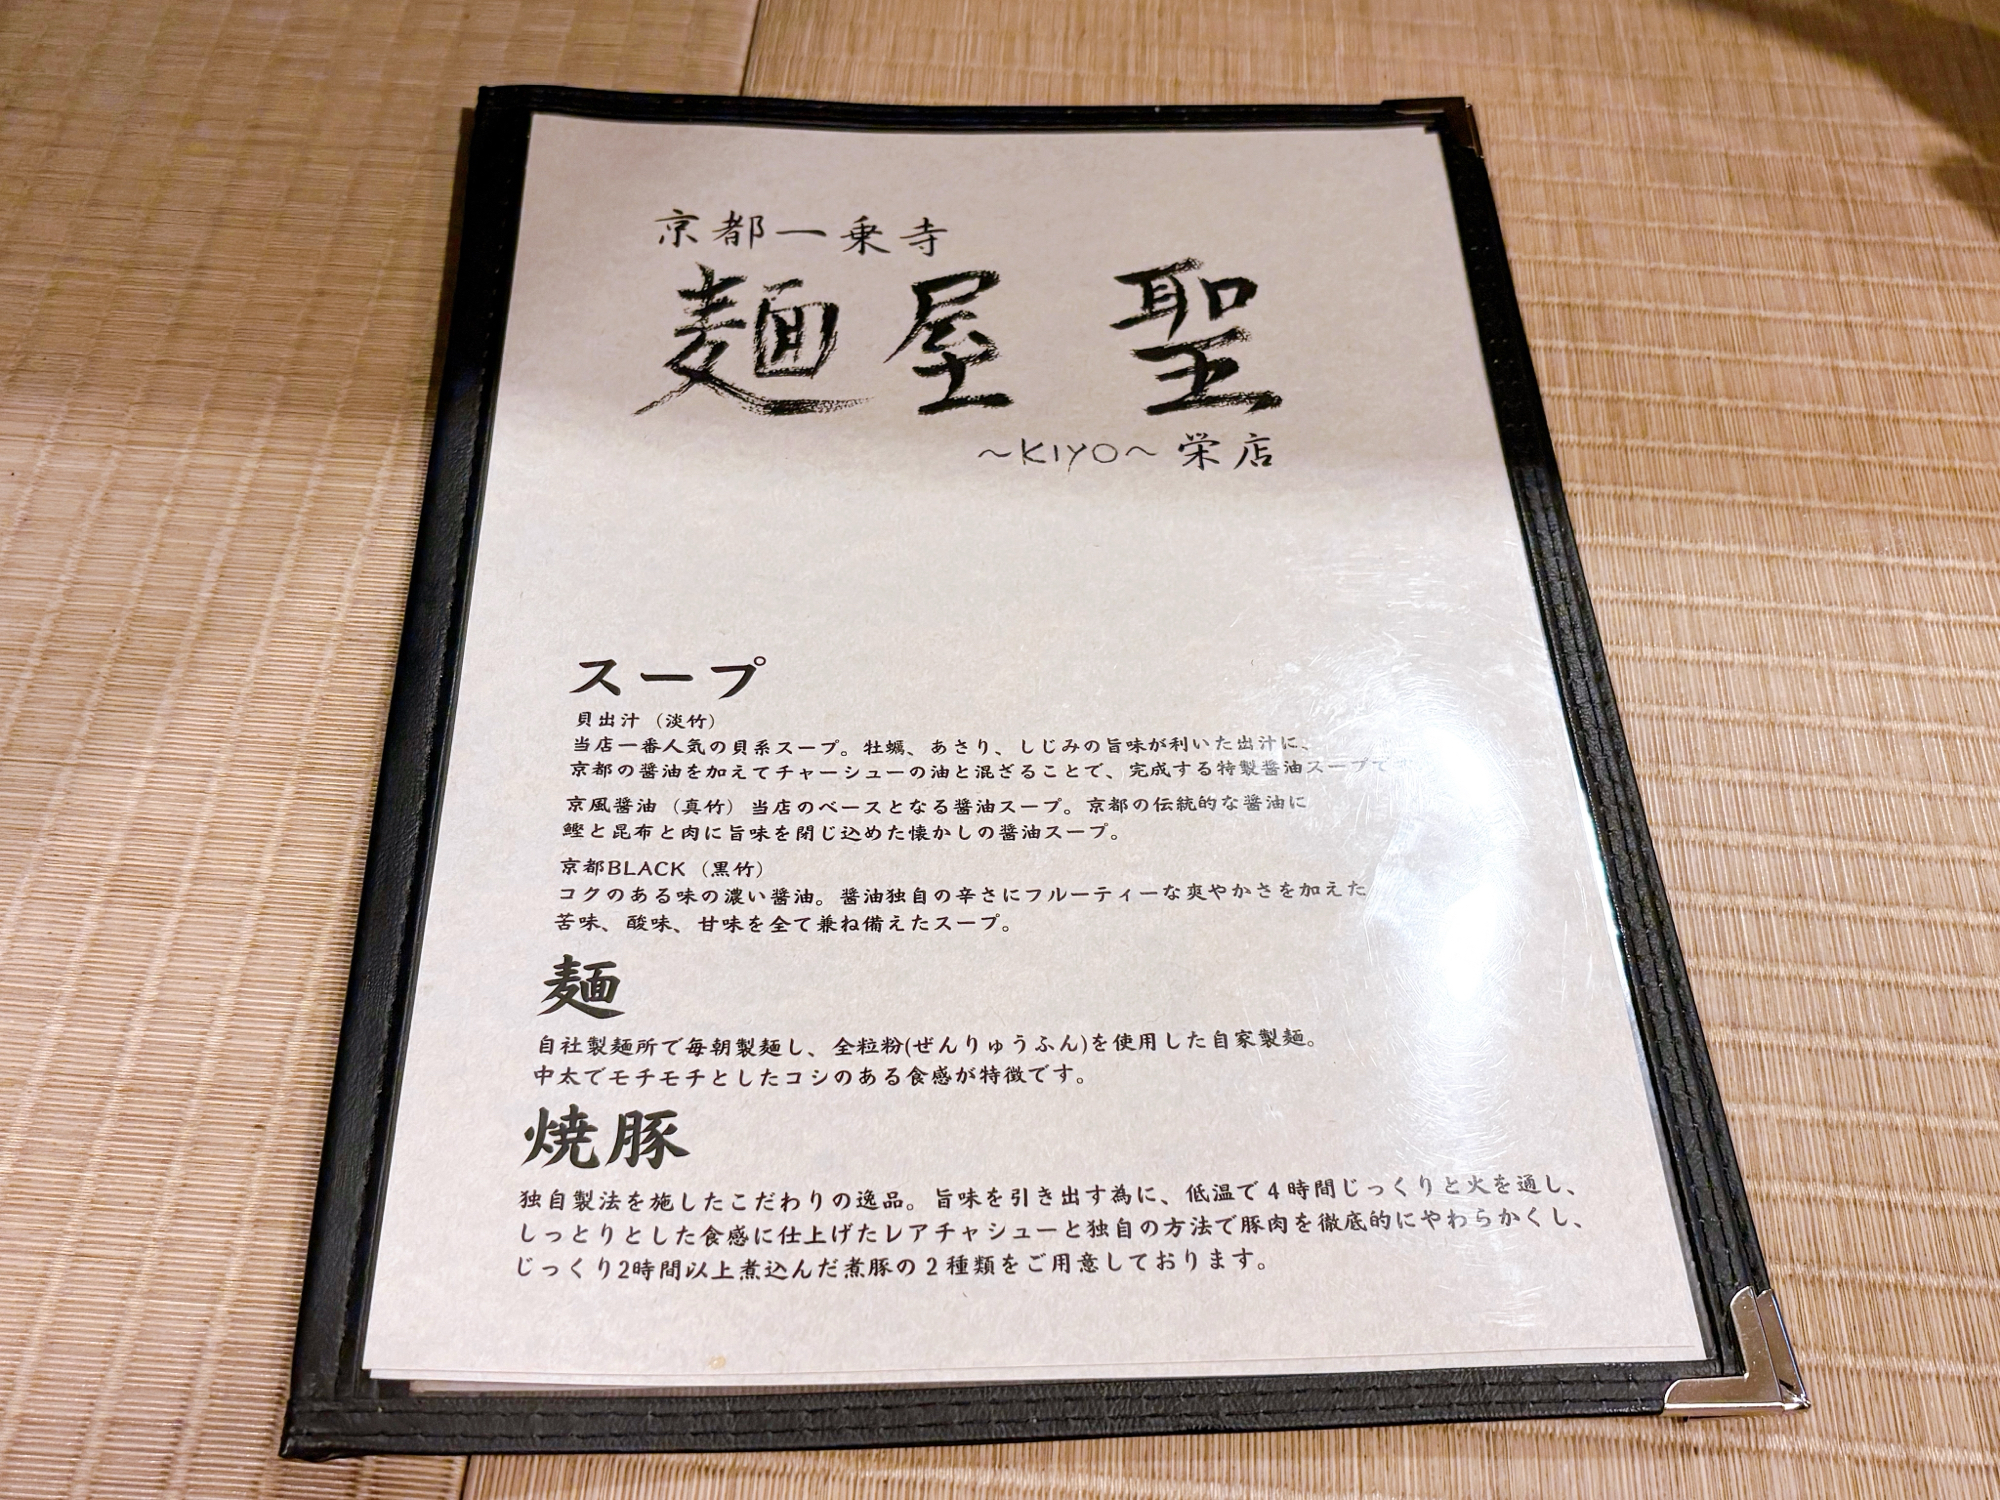 京都一乗寺
麺屋 聖
～KIYO～ 栄店
スープ
貝出汁（淡竹）
当店一番人気の貝系スープ。牡蠣、あさり、しじみの旨味が利いた出汁に、
京都の醤油を加えてチャーシューの油と混ざることで、完成する特製醤油スープで
京風醤油（真竹）当店のベースとなる醤油スープ。京都の伝統的な醤油に
鰹と昆布と肉に旨味を閉じ込めた懐かしの醤油スープ。
京都BLACK（黒竹）
コクのある味の濃い醤油。醤油独自の辛さにフルーティーな爽やかさを加えた
苦味、酸味、甘味を全て兼ね備えたスープ。
麺
自社製麺所で毎朝製麺し、全粒粉(ぜんりゅうふん)を使用した自家製麺。
中太でモチモチとしたコシのある食感が特徴です。
焼豚
独自製法を施したこだわりの逸品。旨味を引き出す為に、低温で４時間じっくりと火を通し、
しっとりとした食感に仕上げたレアチャシューと独自の方法で豚肉を徹底的にやわらかくし、
じっくり2時間以上煮込んだ煮豚の２種類をご用意しております。